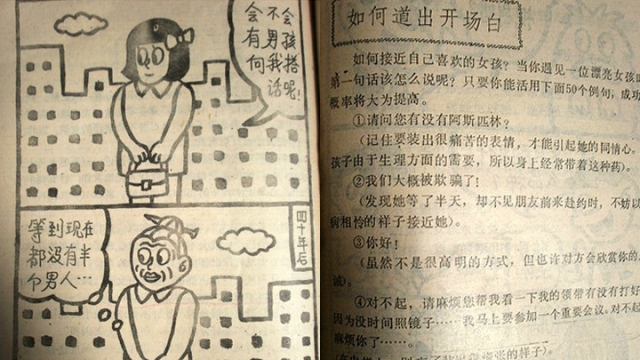 会不会
有男孩
向我搭
话呢!
四十年后
等到现在
都没有半
个男人…
如何道出开场白
如何接近自己喜欢的女孩?当你遇见一位漂亮女孩时
第一句话该怎么说呢?只要你能活用下面50个例句,成功
概率将大为提高。
①请问您有没有阿斯匹林?
(记住要装出很痛苦的表情,才能引起她的同情心。
孩子由于生理方面的需要,所以身上经常带着这种药)。
②我们大概被欺骗了!
(发现她等了半天,却不见朋友前来赴约时,不妨以
病相怜的样子接近她)。
③你好!
(虽然不是很高明的方式,但也许对方会欣赏你的
诚)。
④对不起,请麻烦您帮我看一下我的领带有没有打好
因为没时间照镜子……我马上要参加一个重要会议。对不起
麻烦你了……。